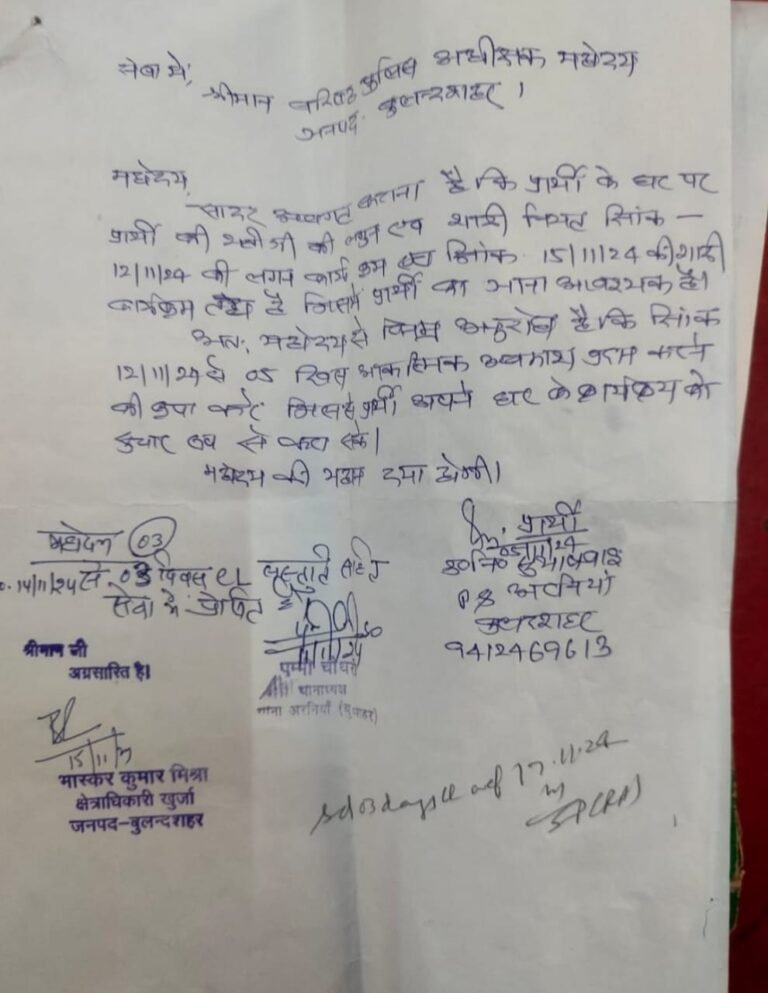 सेवा में,
श्रीमान वरिष्ठ पुलिस अधीक्षक महोदय
जनपद बुलन्दशहर ।
महोदय,
सादर अवगत कराना है कि प्रार्थी के घर पर
प्रार्थी की भतीजी की लगुन एवं शादी नियत दिनांक –
12/11/24 की लगन कार्यक्रम एवं दिनांक 15/11/24 की शादी
कार्यक्रम है जिसमें प्रार्थी का जाना आवश्यक है।
अतः महोदय से विनम्र अनुरोध है कि दिनांक
12/11/24 से 05 दिवस आकस्मिक अवकाश प्रदान करने
की कृपा करें जिससे प्रार्थी अपने घर के कार्यक्रम को
सुचारू रूप से करा सके।
महोदय की महान दया होगी।
प्रार्थी
05/11/24
उ0नि0
PS अरनियां
बुलन्दशहर
9412469613
महोदय 03
14/11/24 से 03 दिवस CL संस्तुति सहित
सेवा में प्रेषित
11/24
पम्मी चौधरी
थानाध्यक्ष
थाना अरनियाँ (बु०शहर)
श्रीमान जी
अग्रसारित है।
15/11/
भास्कर कुमार मिश्रा
क्षेत्राधिकारी खुर्जा
जनपद-बुलन्दशहर
03 days cl wef 17.11.24